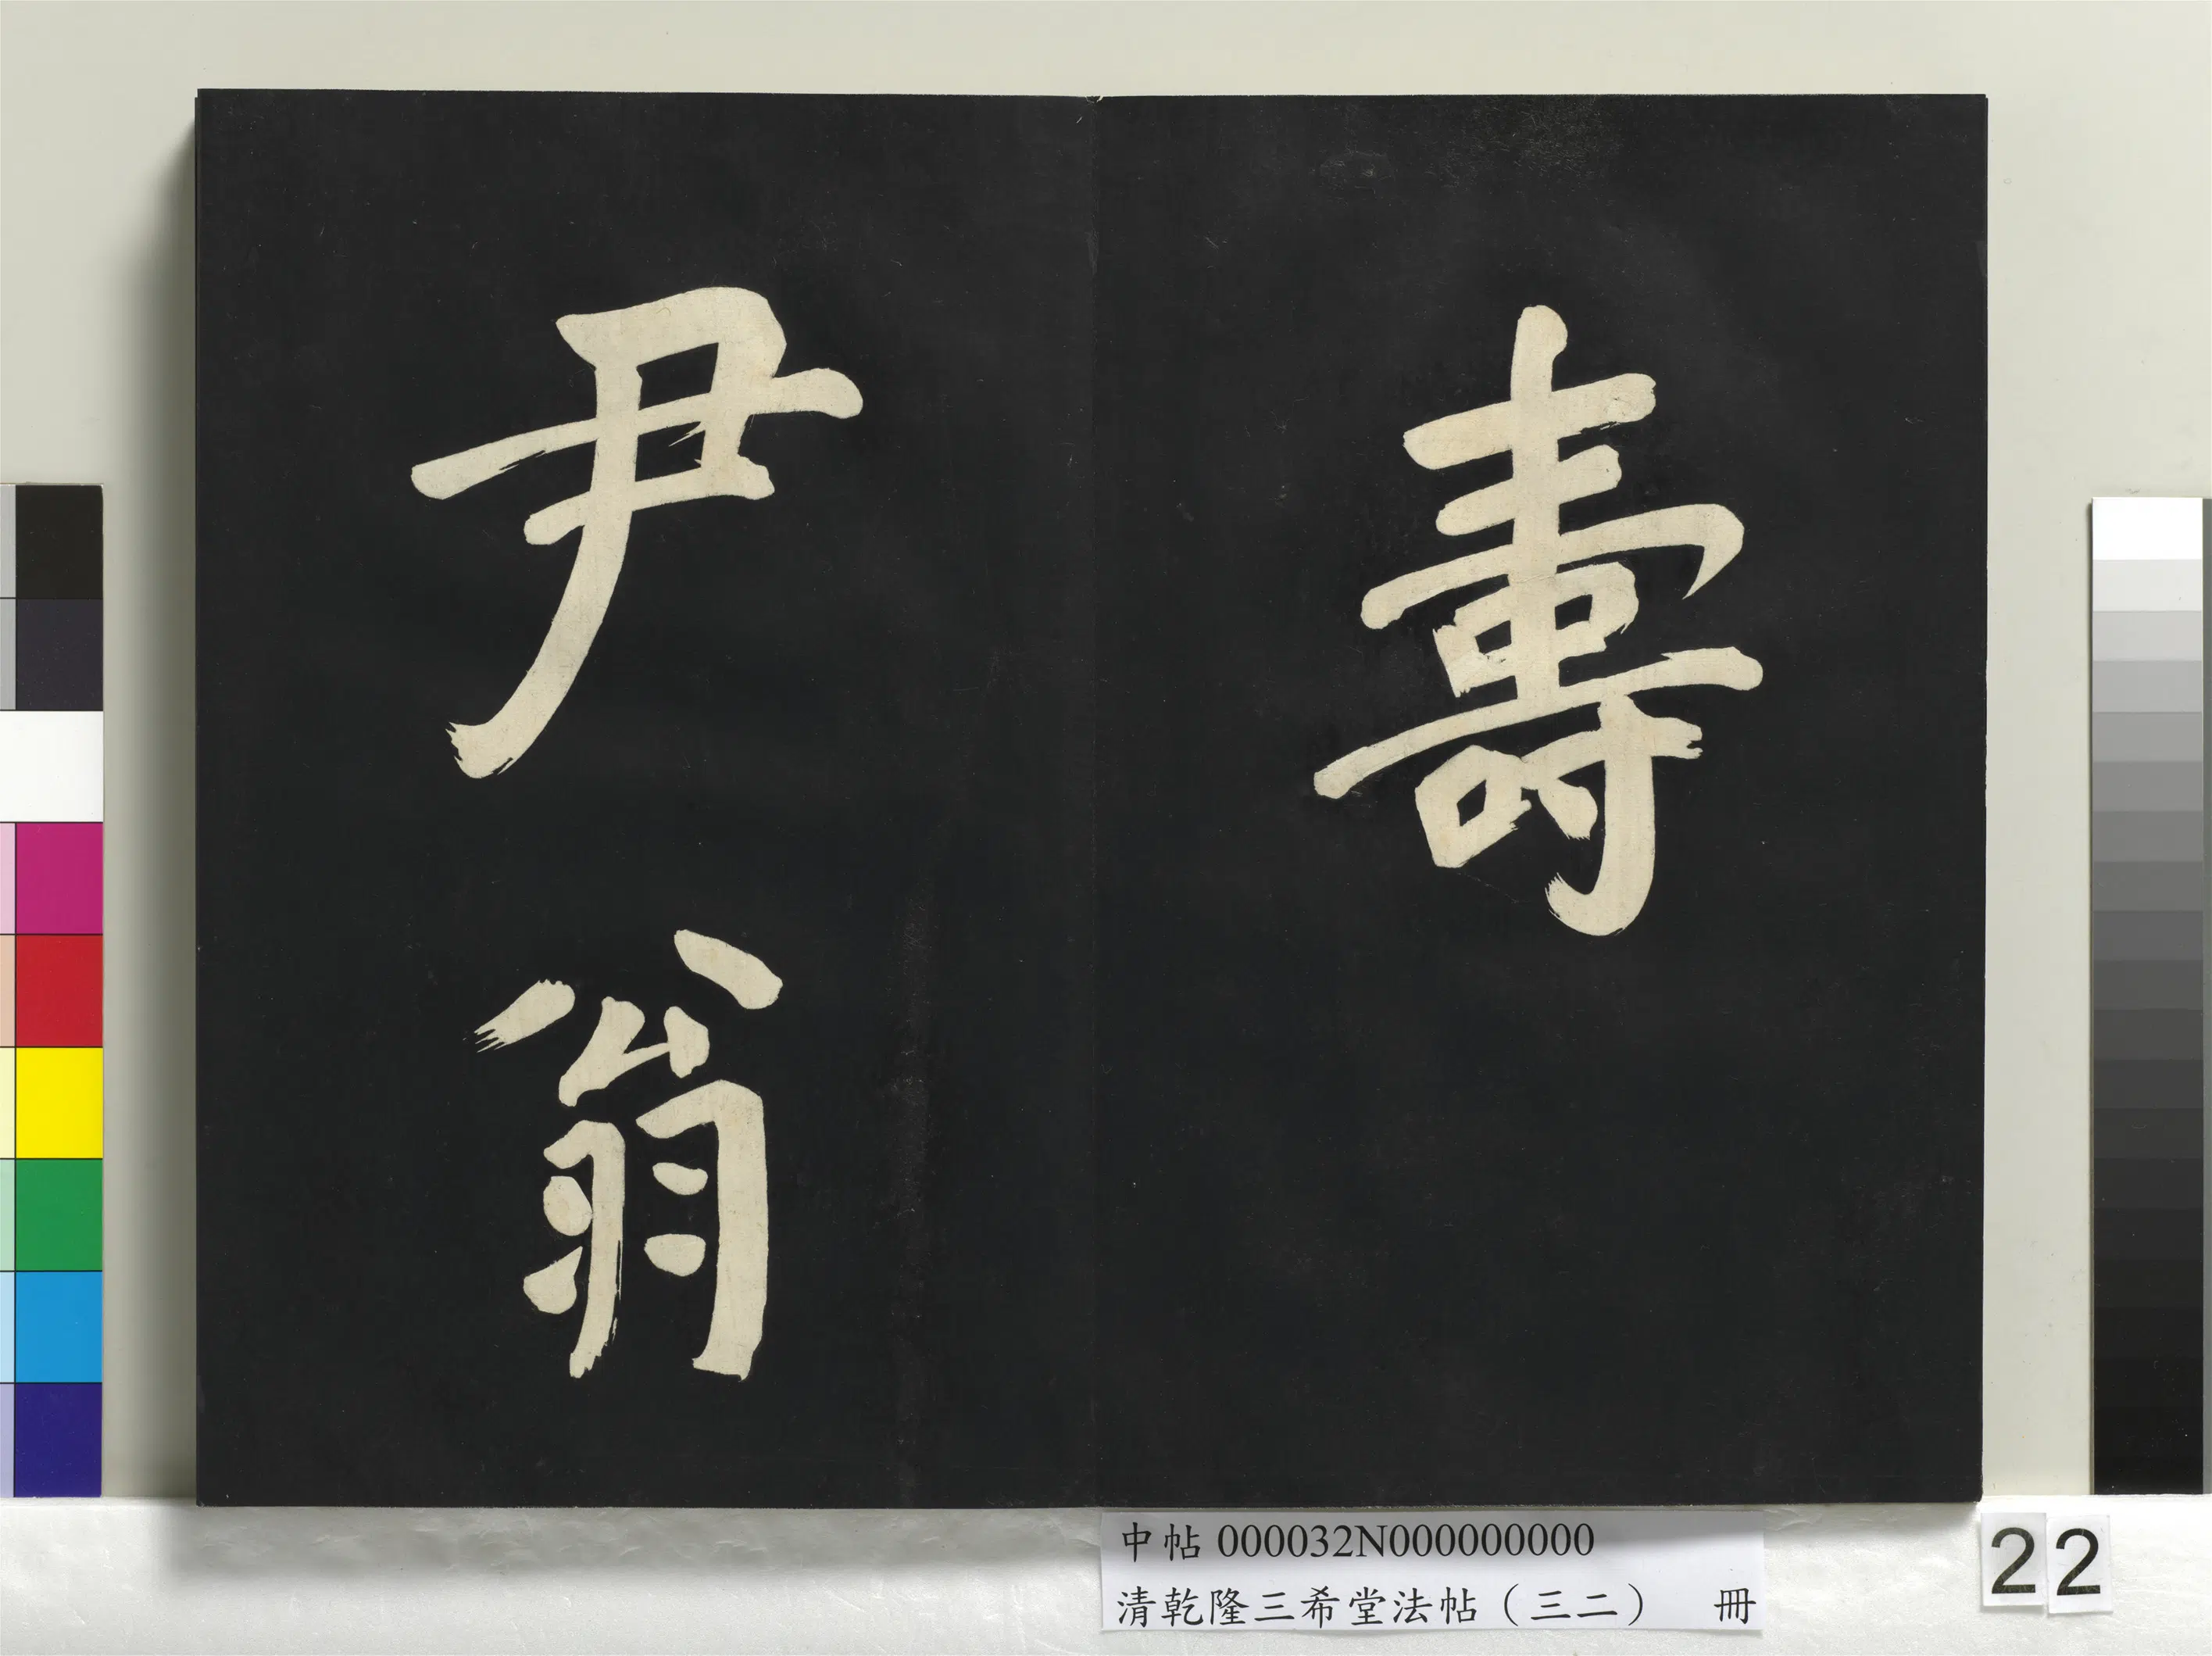 壽
尹翁
中帖 000032N000000000
清乾隆三希堂法帖（三二） 冊
22